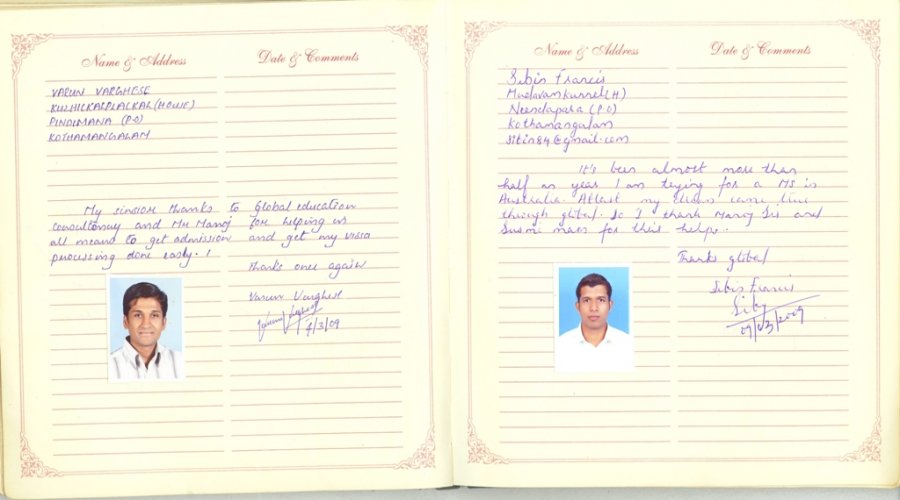 Name & Address
Date & Comments
VARUN VARGHESE
KUZHICKAPLACKAL (HOUSE)
PINDIMANA (P.O)
KOTHAMANGALAM
My sincior thanks to Global education
consultancy and Mr Manoj for helping in
all means to get admission and get my vissa
processing done easly. !
Thanks once again
Varun Varghese
4/3/09
Name & Address
Date & Comments
Sibin Francis
Madavankunnel (H)
Neendapara (P.O)
Kothamangalam
sibin84@gmail.com
It's been almost more than
half an year I am trying for a MS in
Australia. Atlast my dream came true
through global. So I thank Manoj Sir and
mam for their help..
Thanks global
Sibin Francis
09/03/2009